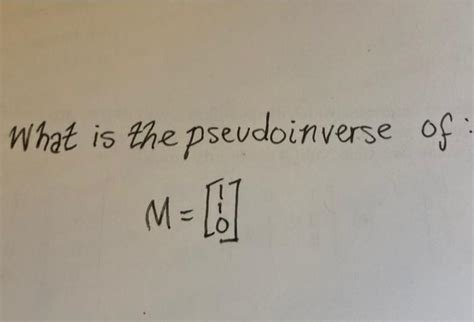 What is the pseudoinverse of:
M = [1
1
0]